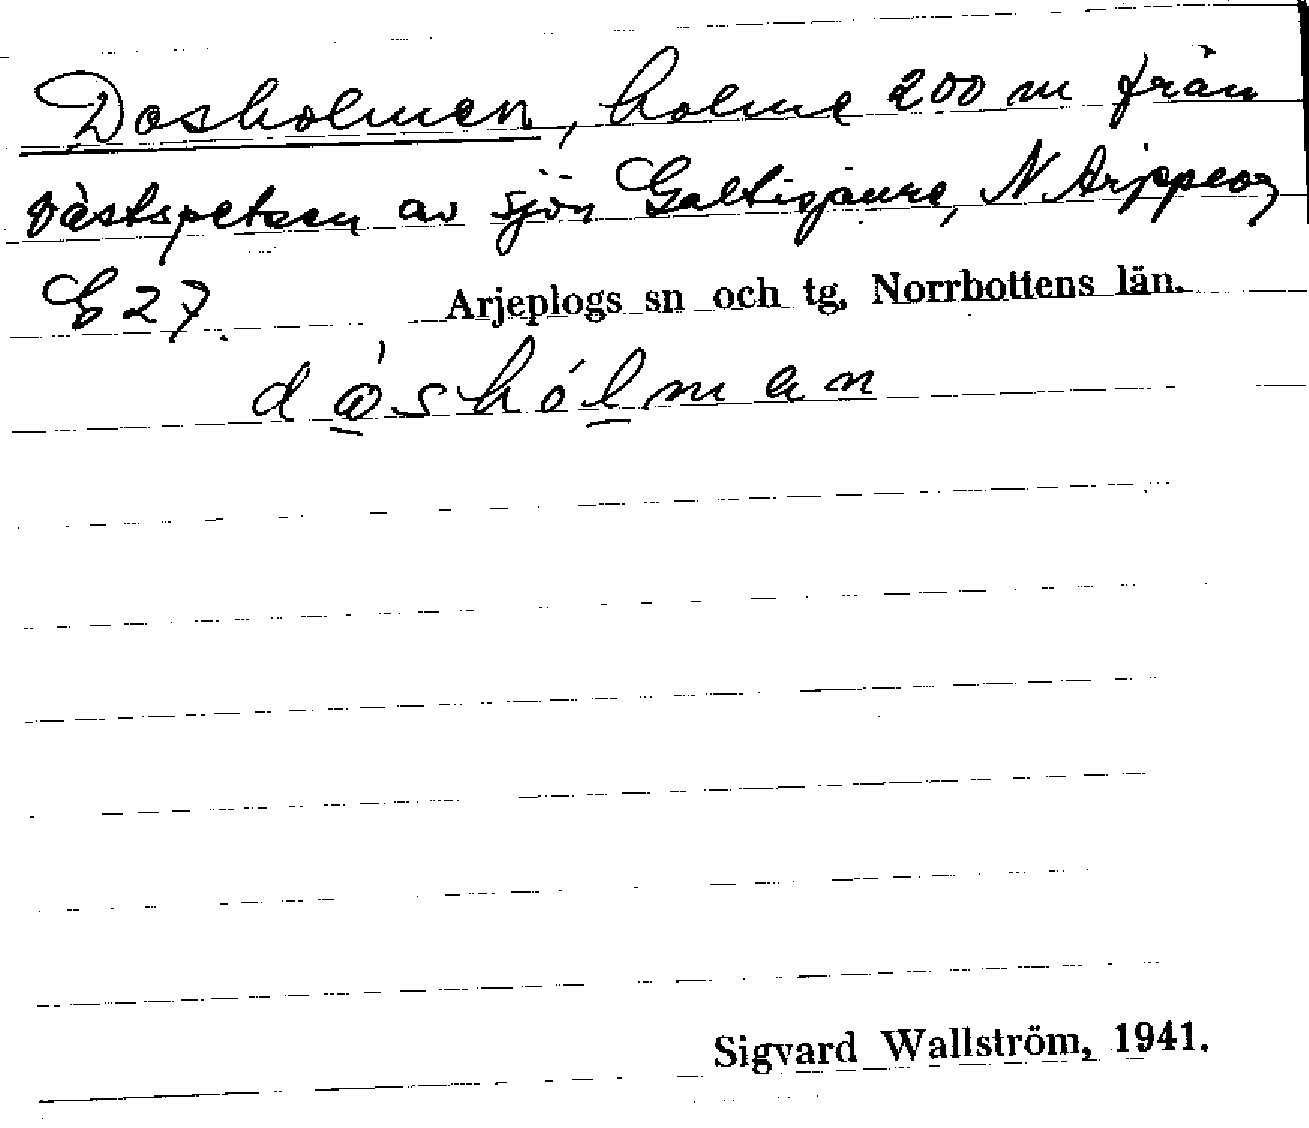 Dosholmen, holme 200 m från
västspetsen av sjön Galtisjaure, N Arjeplog
E 27. Arjeplogs sn och tg, Norrbottens län.
Sigvard Wallström, 1941.